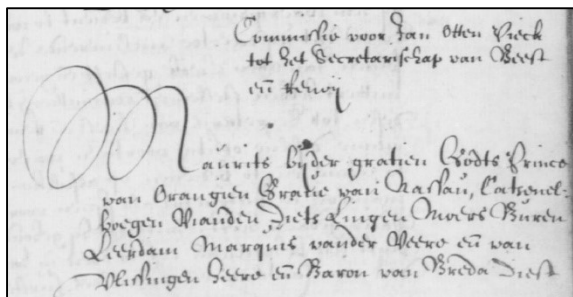 Commissie voor Jan Otten Vieck
tot het Secretarischap van Beest
en̄ Renoij
Maurits bijder gratien Godts Prince
van Orangien Grave van Nassau, Catzenel-
boegen Vianden Dietz Lingen Moers Buren
Leerdam Marquis vander Veere en̄ van
Vlissingen heere en̄ Baron van Breda Diest